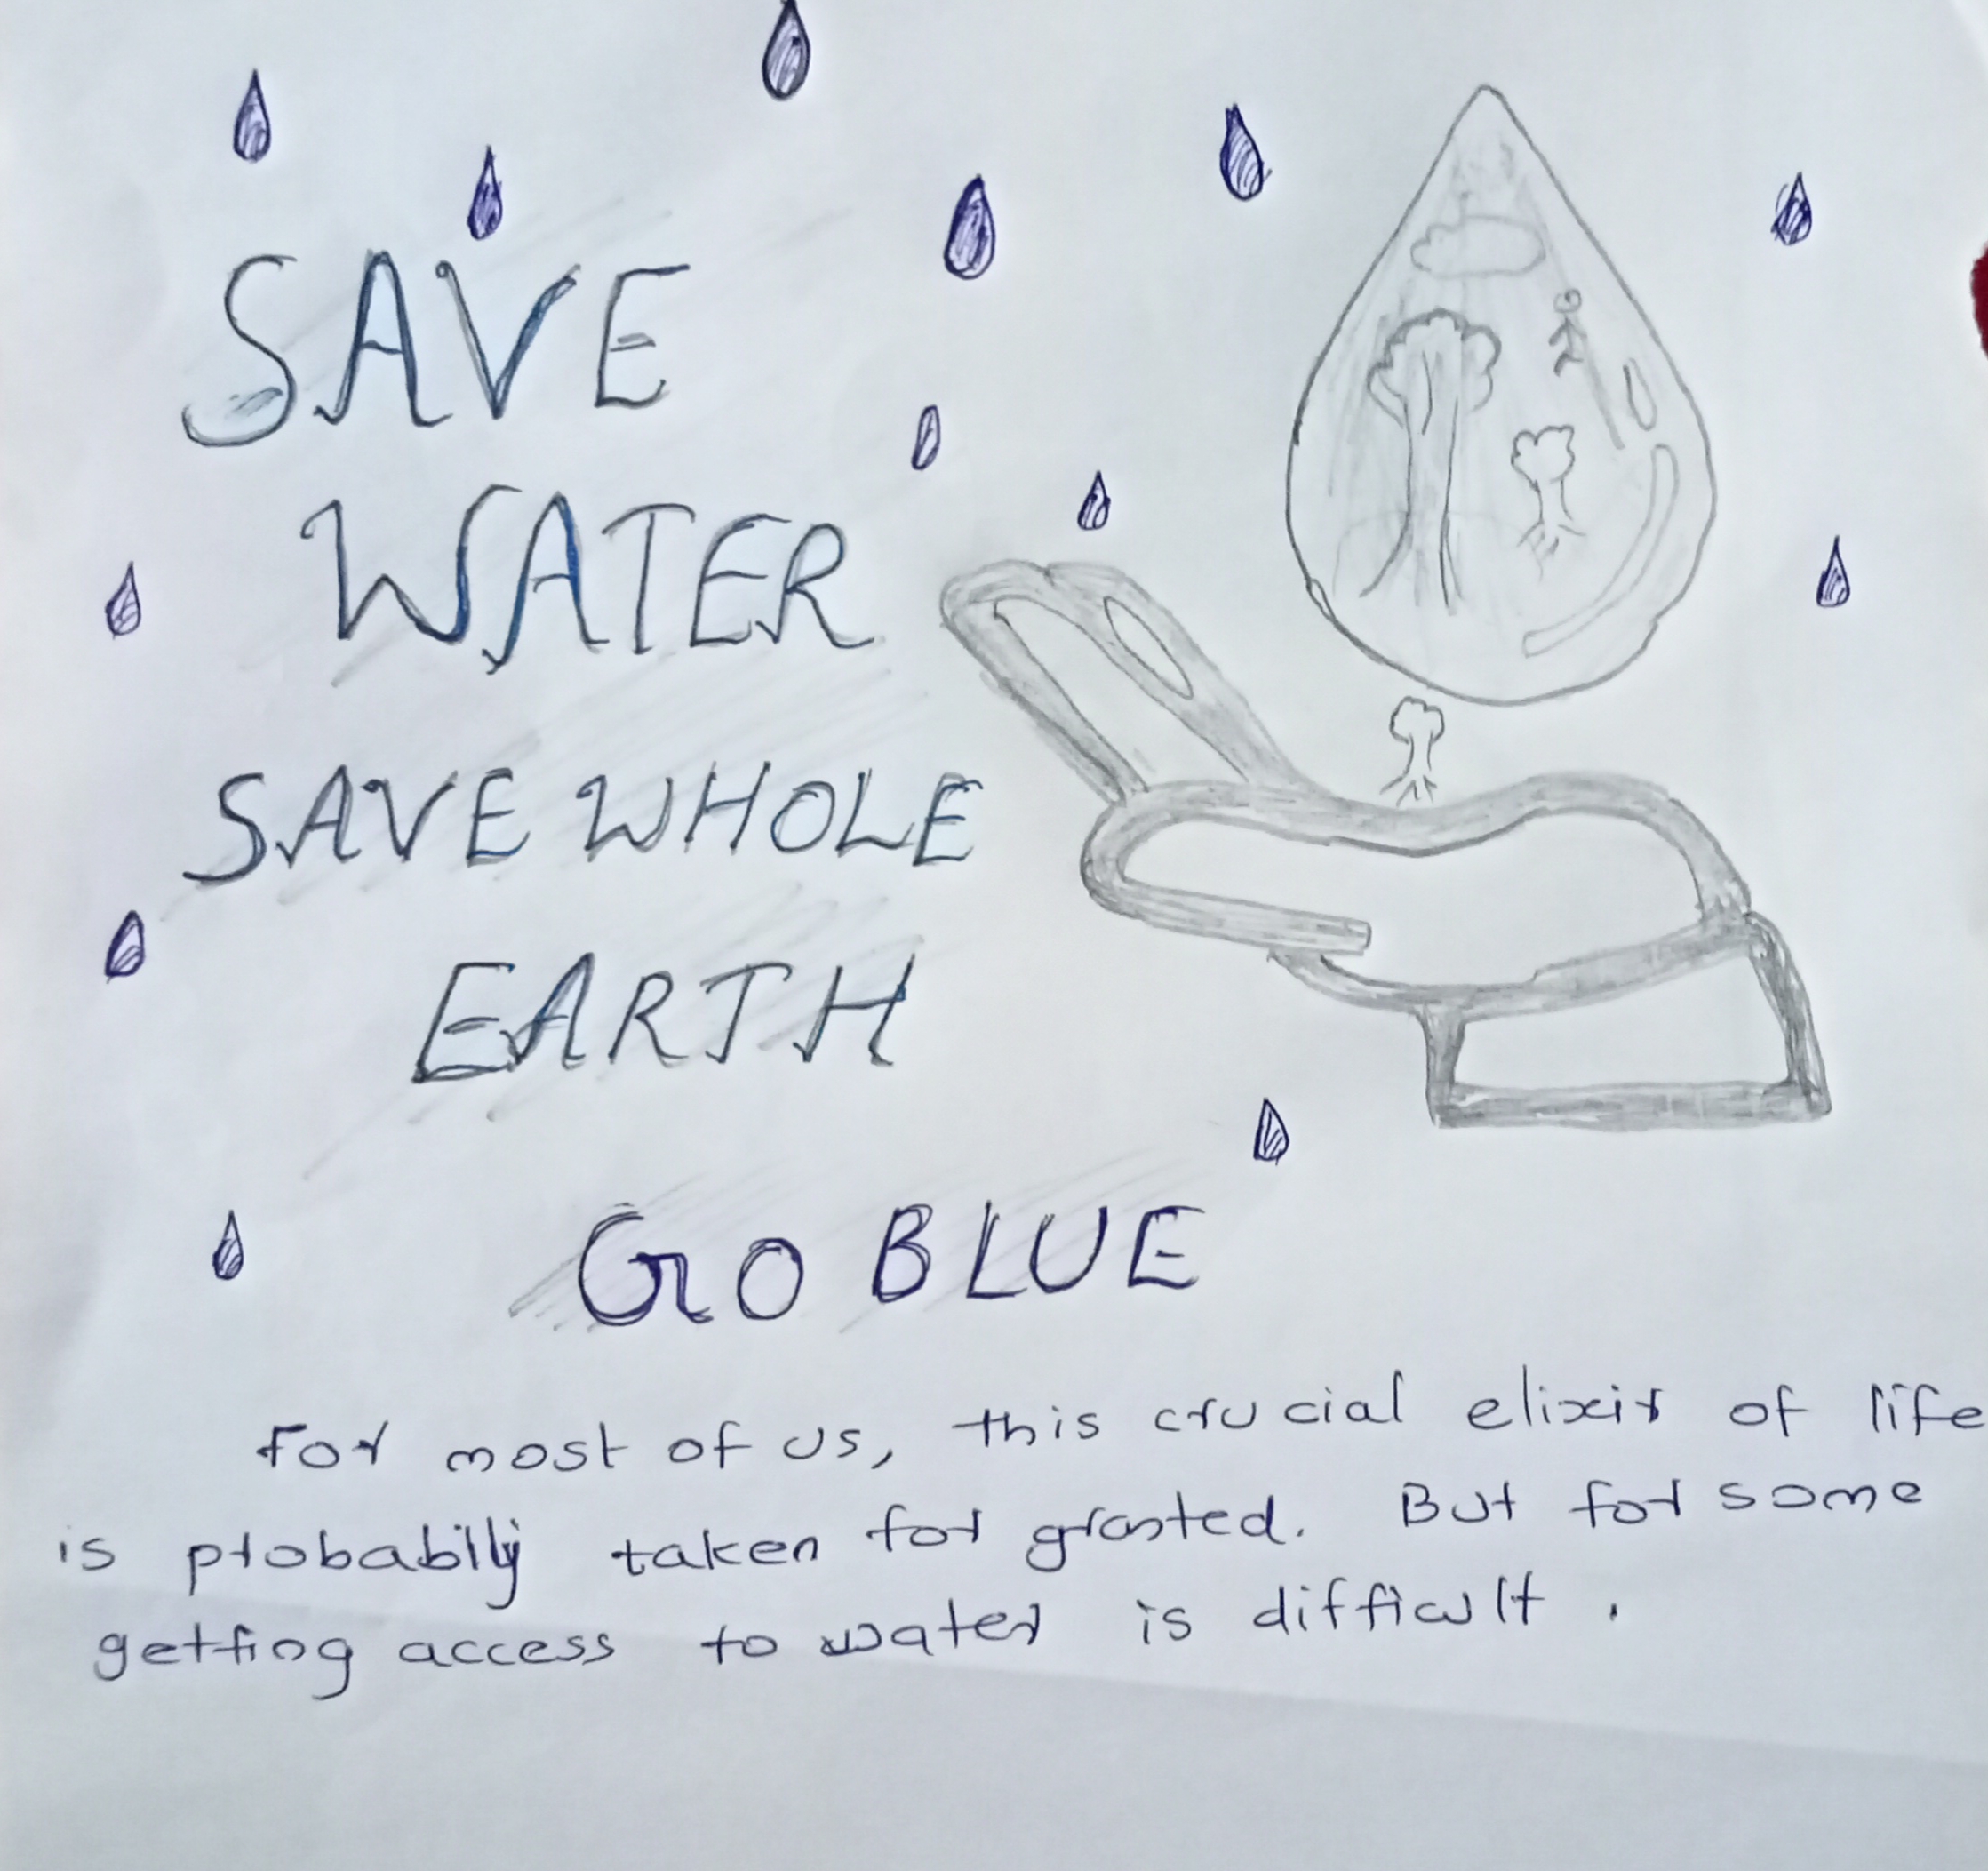 SAVE
WATER
SAVE WHOLE
EARTH
GO BLUE
For most of us, this crucial elixir of life
is probablily taken for granted. But for some
getting access to water is difficult.